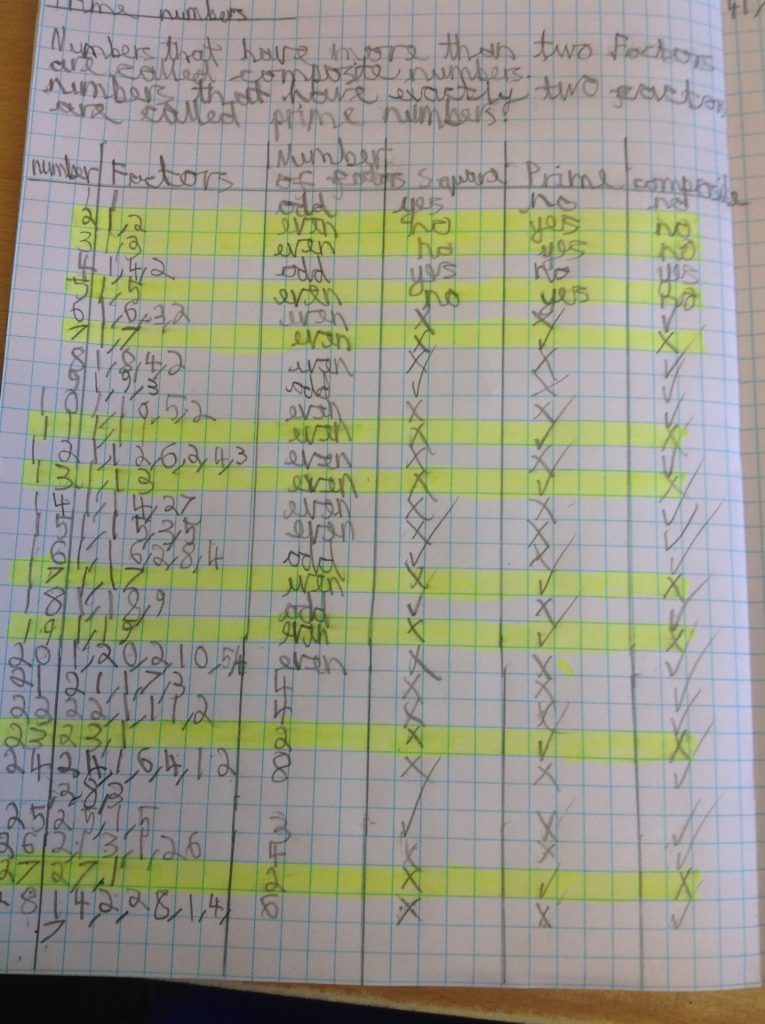 Prime numbers
41
Numbers that have more than two factors
are called composite numbers.
numbers that have exactly two factors
are called prime numbers.
number Factors Number of factors Square Prime composite
1 odd yes no no
2 1,2 even no yes no
3 1,3 even no yes no
4 1,4,2 odd yes no yes
5 1,5 even no yes no
6 1,6,3,2 even X X ✓
7 1,7 even X ✓ X
8 1,8,4,2 even X X ✓
9 1,9,3 odd ✓ X ✓
10 1,10,5,2 even X X ✓
11 1,11 even X ✓ X
12 1,12,6,2,4,3 even X X ✓
13 1,13 even X ✓ X
14 1,14,27 even X X ✓
15 1,15,3,5 even X X ✓
16 1,16,2,8,4 odd ✓ X ✓
17 1,17 even X ✓ X
18 1,18,9 odd ✓ X ✓
19 1,19 even X ✓ X
20 1,20,2,10,5,4 even X X ✓
21 21,1,7,3 4 X X ✓
22 22,1,11,2 4 X X ✓
23 23,1 2 X ✓ X
24 24,1,6,4,12 8 X X ✓
,3,8,2
25 25,1,5 3 ✓ X ✓
26 2,13,1,26 4 X X ✓
27 27,1 2 X ✓ X
28 14,2,28,1,4, 6 X X ✓
7